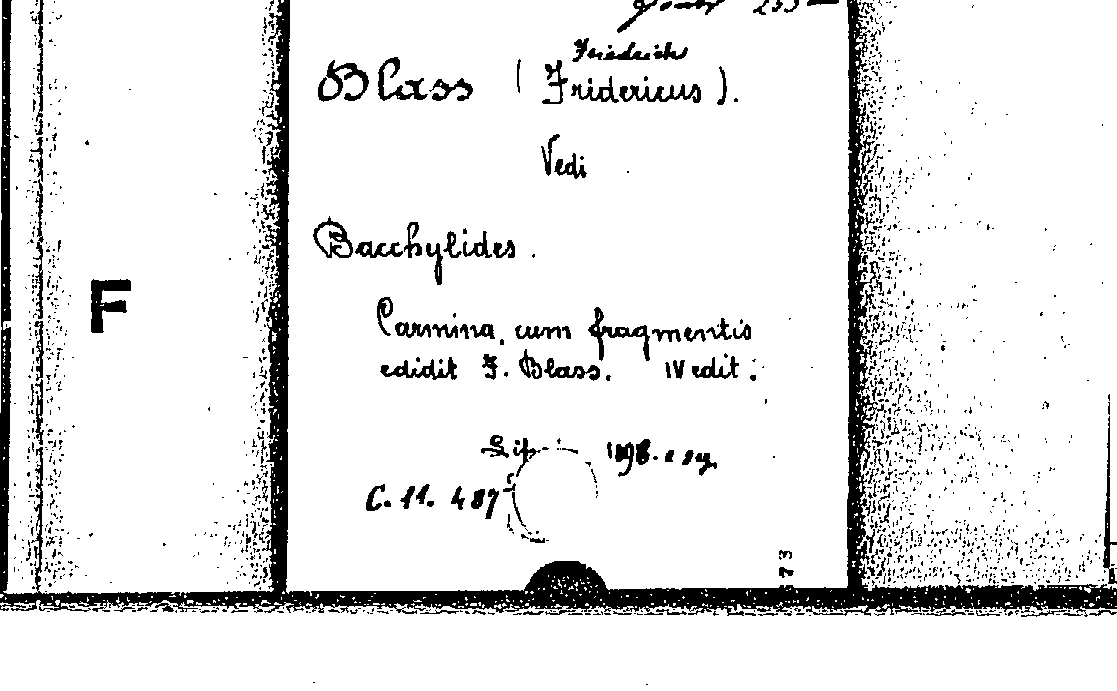 233
Friedrich
Blass (Fridericus).
Vedi
Bacchylides.
Carmina, cum fragmentis
edidit F. Blass. IV edit.
F
Lip 1898. e sg.
C. 11. 487
573